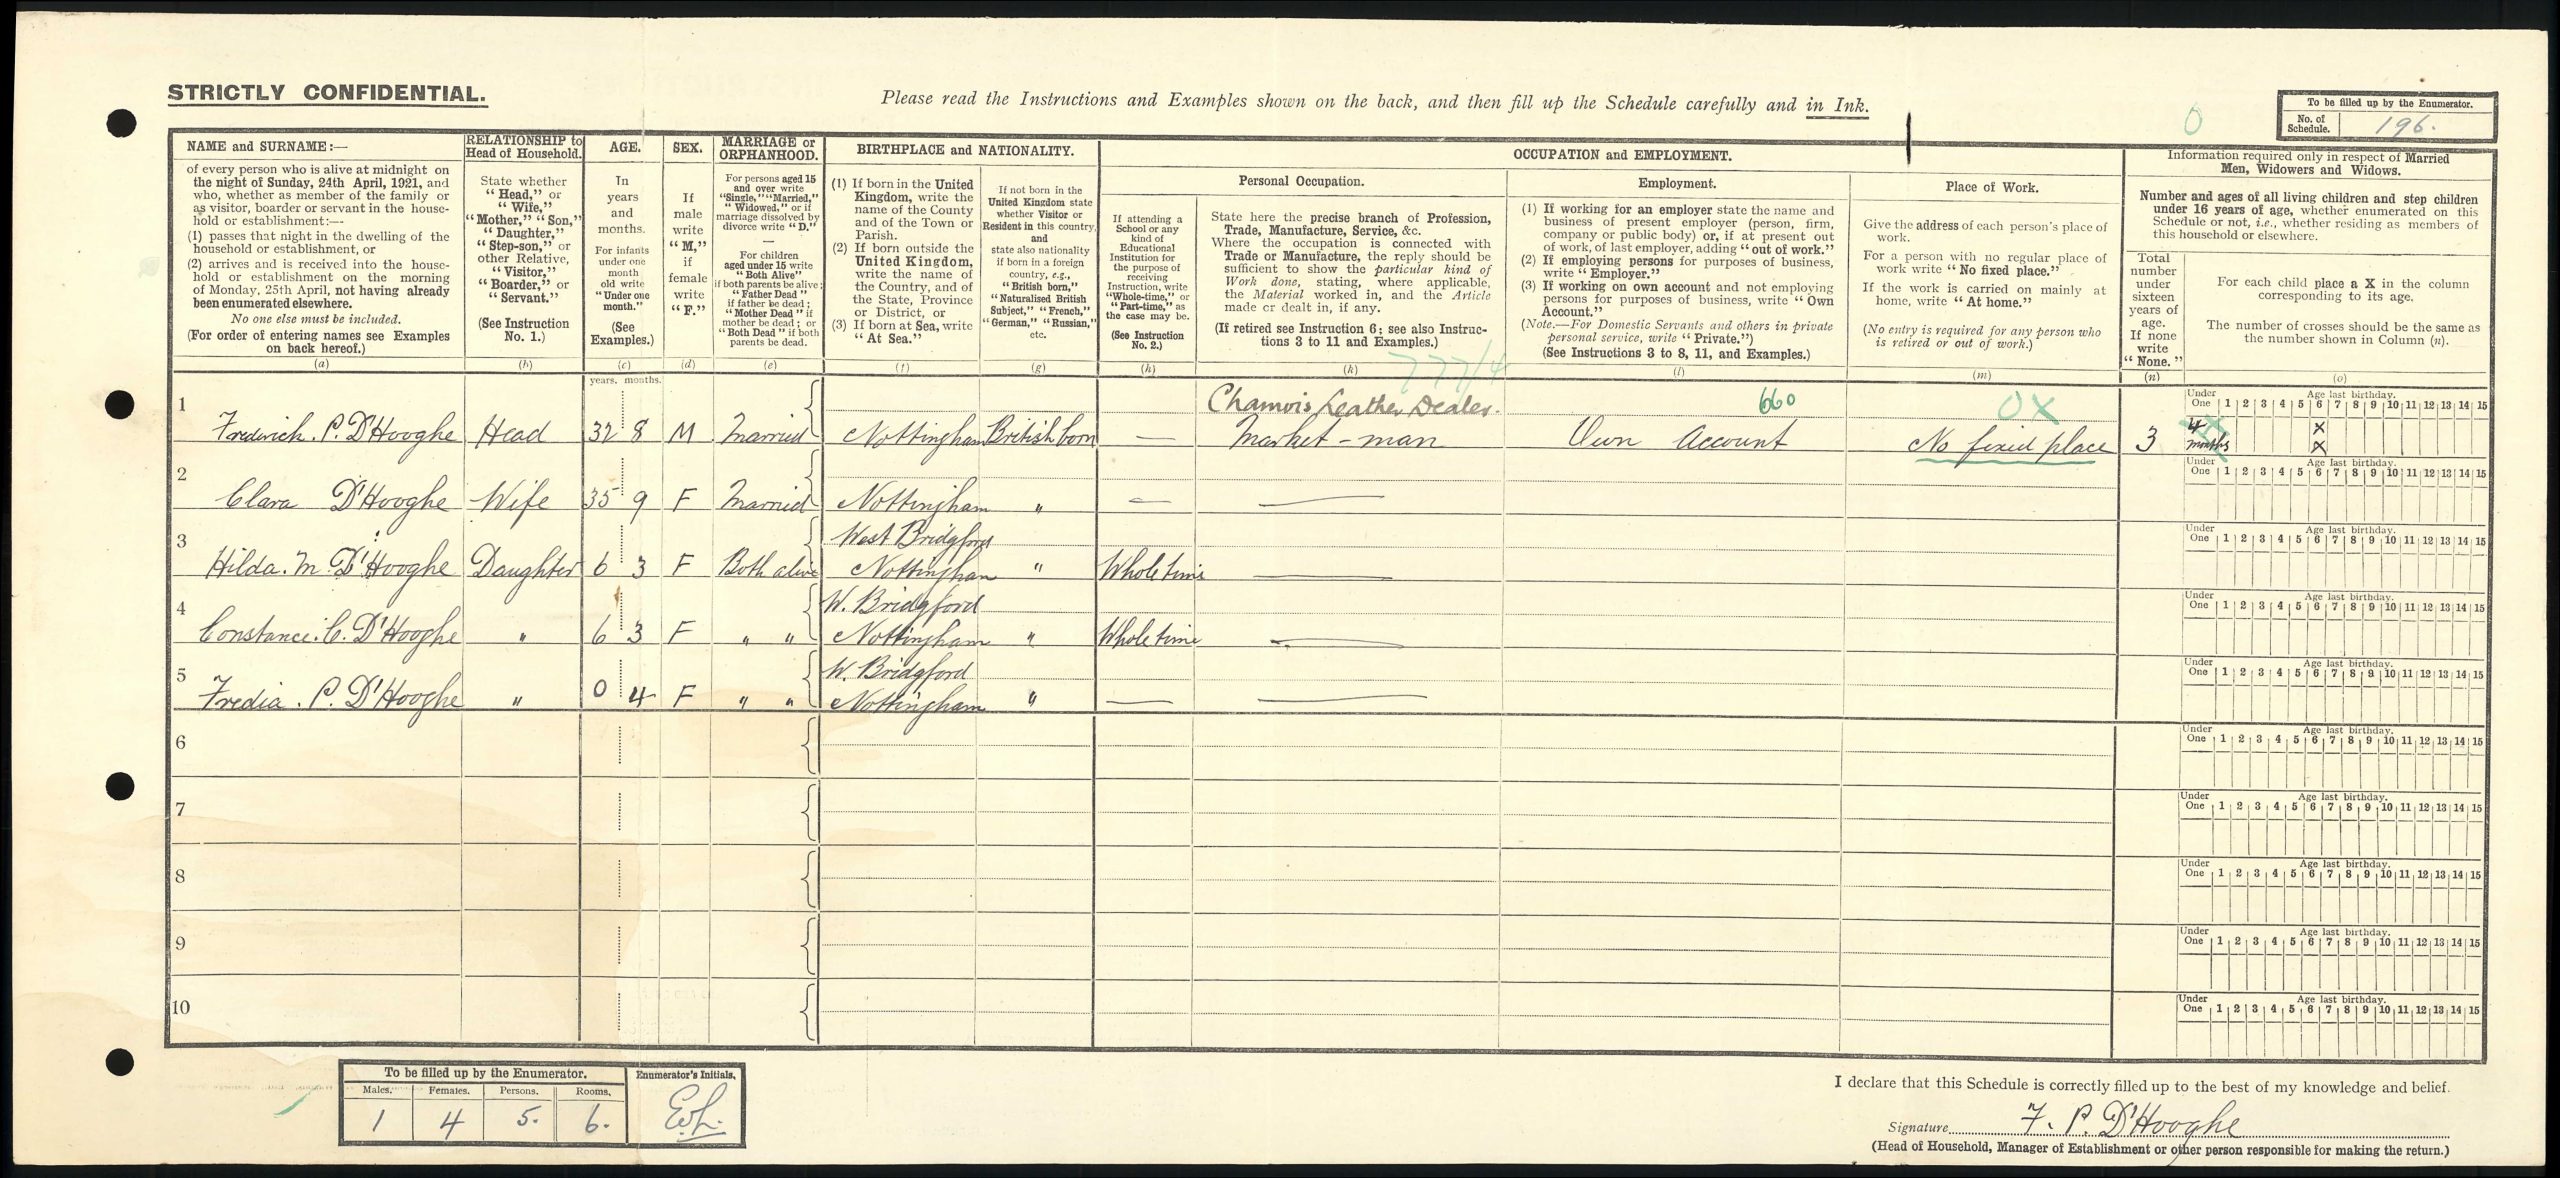 STRICTLY CONFIDENTIAL.
Please read the Instructions and Examples shown on the back, and then fill up the Schedule carefully and in Ink.
0
To be filled up by the Enumerator.
No. of Schedule. 196.
NAME and SURNAME:—
of every person who is alive at midnight on
the night of Sunday, 24th April, 1921, and
who, whether as member of the family or
as visitor, boarder or servant in the house-
hold or establishment:—
(1) passes that night in the dwelling of the
household or establishment, or
(2) arrives and is received into the house-
hold or establishment on the morning
of Monday, 25th April, not having already
been enumerated elsewhere.
No one else must be included.
(For order of entering names see Examples
on back hereof.)
(a)
RELATIONSHIP to
Head of Household.
State whether
"Head," or
"Wife,"
"Mother," "Son,"
"Daughter,"
"Step-son," or
other Relative,
"Visitor,"
"Boarder," or
"Servant."
(See Instruction
No. 1.)
(b)
AGE.
In
years
and
months.
For infants
under one
month
old write
"Under one
month."
(See
Examples.)
(c)
years. months.
SEX.
If
male
write
"M,"
if
female
write
"F."
(d)
MARRIAGE or
ORPHANHOOD.
For persons aged 15
and over write
"Single," "Married,"
"Widowed," or if
marriage dissolved by
divorce write "D."
—
For children
aged under 15 write
"Both Alive"
if both parents be alive;
"Father Dead"
if father be dead;
"Mother Dead" if
mother be dead; or
"Both Dead" if both
parents be dead.
(e)
BIRTHPLACE and NATIONALITY.
(1) If born in the United
Kingdom, write the
name of the County
and of the Town or
Parish.
(2) If born outside the
United Kingdom,
write the name of
the Country, and of
the State, Province
or District, or
(3) If born at Sea, write
"At Sea."
(f)
If not born in the
United Kingdom state
whether Visitor or
Resident in this country,
and
state also nationality
if born in a foreign
country, e.g.,
"British born,"
"Naturalised British
Subject," "French,"
"German," "Russian,"
etc.
(g)
OCCUPATION and EMPLOYMENT.
If attending a
School or any
kind of
Educational
Institution for
the purpose of
receiving
Instruction, write
"Whole-time," or
"Part-time," as
the case may be.
(See Instruction
No. 2.)
(h)
Personal Occupation.
State here the precise branch of Profession,
Trade, Manufacture, Service, &c.
Where the occupation is connected with
Trade or Manufacture, the reply should be
sufficient to show the particular kind of
Work done, stating, where applicable,
the Material worked in, and the Article
made or dealt in, if any.
(If retired see Instruction 6; see also Instruc-
tions 3 to 11 and Examples.)
(k)
777/4
Employment.
(1) If working for an employer state the name and
business of present employer (person, firm,
company or public body) or, if at present out
of work, of last employer, adding "out of work."
(2) If employing persons for purposes of business,
write "Employer."
(3) If working on own account and not employing
persons for purposes of business, write "Own
Account."
(Note.—For Domestic Servants and others in private
personal service, write "Private.")
(See Instructions 3 to 8, 11, and Examples.)
(l)
Place of Work.
Give the address of each person's place of
work.
For a person with no regular place of
work write "No fixed place."
If the work is carried on mainly at
home, write "At home."
(No entry is required for any person who
is retired or out of work.)
(m)
Information required only in respect of Married
Men, Widowers and Widows.
Number and ages of all living children and step children
under 16 years of age, whether enumerated on this
Schedule or not, i.e., whether residing as members of
this household or elsewhere.
Total
number
under
sixteen
years of
age.
If none
write
"None."
(n)
For each child place a X in the column
corresponding to its age.
The number of crosses should be the same as
the number shown in Column (n).
(o)
Chamois Leather Dealer. 660 OX
1 Frederick. P. D'Hooghe Head 32 8 M Married Nottingham British born — Market-man Own Account No fixed place 3
Under One Age last birthday. 1 2 3 4 5 6 7 8 9 10 11 12 13 14 15
4 months X X
2 Clara D'Hooghe Wife 35 9 F Married Nottingham " — —
Under One Age last birthday. 1 2 3 4 5 6 7 8 9 10 11 12 13 14 15
West Bridgford
3 Hilda. M. D'Hooghe Daughter 6 3 F Both alive Nottingham " Whole time —
Under One Age last birthday. 1 2 3 4 5 6 7 8 9 10 11 12 13 14 15
W. Bridgford
4 Constance. C. D'Hooghe " 6 3 F " " Nottingham " Whole time —
Under One Age last birthday. 1 2 3 4 5 6 7 8 9 10 11 12 13 14 15
W. Bridgford
5 Fredia. P. D'Hooghe " 0 4 F " " Nottingham " — —
Under One Age last birthday. 1 2 3 4 5 6 7 8 9 10 11 12 13 14 15
6 Under One Age last birthday. 1 2 3 4 5 6 7 8 9 10 11 12 13 14 15
7 Under One Age last birthday. 1 2 3 4 5 6 7 8 9 10 11 12 13 14 15
8 Under One Age last birthday. 1 2 3 4 5 6 7 8 9 10 11 12 13 14 15
9 Under One Age last birthday. 1 2 3 4 5 6 7 8 9 10 11 12 13 14 15
10 Under One Age last birthday. 1 2 3 4 5 6 7 8 9 10 11 12 13 14 15
To be filled up by the Enumerator. Enumerator's Initials.
Males. Females. Persons. Rooms.
1 4 5. 6. E.L.
I declare that this Schedule is correctly filled up to the best of my knowledge and belief.
Signature F. P. D'Hooghe
(Head of Household, Manager of Establishment or other person responsible for making the return.)